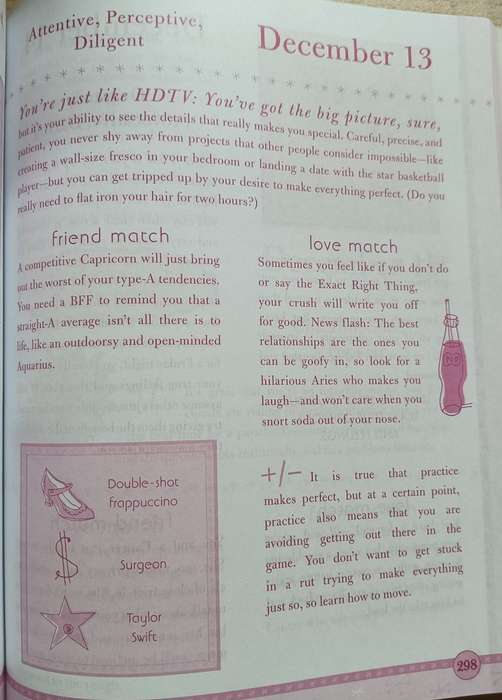 Attentive, Perceptive,
Diligent
December 13
You're just like HDTV: You've got the big picture, sure,
but it's your ability to see the details that really makes you special. Careful, precise, and
patient, you never shy away from projects that other people consider impossible—like
creating a wall-size fresco in your bedroom or landing a date with the star basketball
player—but you can get tripped up by your desire to make everything perfect. (Do you
really need to flat iron your hair for two hours?)
friend match
A competitive Capricorn will just bring
out the worst of your type-A tendencies.
You need a BFF to remind you that a
straight-A average isn't all there is to
life, like an outdoorsy and open-minded
Aquarius.
love match
Sometimes you feel like if you don't do
or say the Exact Right Thing,
your crush will write you off
for good. News flash: The best
relationships are the ones you
can be goofy in, so look for a
hilarious Aries who makes you
laugh—and won't care when you
snort soda out of your nose.
Double-shot
frappuccino
Surgeon
Taylor
Swift
+/- It is true that practice
makes perfect, but at a certain point,
practice also means that you are
avoiding getting out there in the
game. You don't want to get stuck
in a rut trying to make everything
just so, so learn how to move.
298